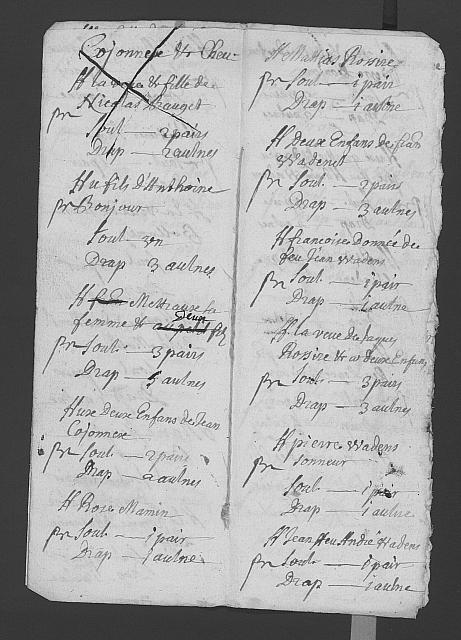 Cojonnexe & Cheu
# la veue & fille de
Nicolas Hauget
pr Soul. — 2 pairs
Drap — 2 aulnes
# u fils d'Anthoine
pr Bonjour
Soul — 3 n
Drap 3 aulnes
# Mettraux sa
femme & deux fils
pr Soul. — 3 pairs
Drap — 5 aulnes
# ux Deux Enfans de Jean
Cojonnexe
pr Soul. — 2 pairs
Drap — 2 aulnes
# Rose Mamin
pr Soul. — 1 pair
Drap — 1 aulne
# Mathias Rosire
pr Soul. — 1 pair
Drap — 1 aulne
# Deux Enfans de Jean
Wadens
pr Soul. — 2 pairs
Drap — 3 aulnes
# francoise Donnée de
feu Jean Wadens
pr Soul. — 1 pair
Drap — 1 aulne
# la veue de Jaques
Rosire & ses deux Enfans
pr Soul. — 3 pairs
Drap — 3 aulnes
# pierre Wadens
pr sonneur
Soul — 1 pair
Drap — 1 aulne
# Jean feu André Wadens
pr Soul. — 1 pair
Drap — 1 aulne